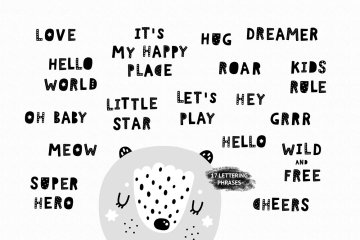 LOVE
IT'S
MY HAPPY
PLACE
HUG
DREAMER
HELLO
WORLD
ROAR
KIDS
RULE
LITTLE
STAR
LET'S
PLAY
HEY
OH BABY
GRRR
MEOW
HELLO
WILD
AND
FREE
17 LETTERING
PHRASES
SUPER
HERO
CHEERS